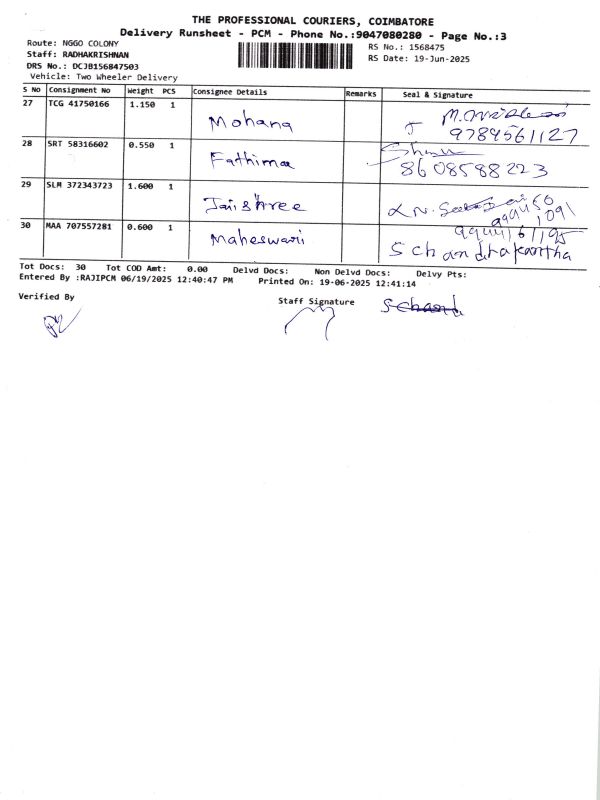 THE PROFESSIONAL COURIERS, COIMBATORE
Delivery Runsheet - PCM - Phone No.:9047080280 - Page No.:3
Route: NGGO COLONY
RS No.: 1568475
Staff: RADHAKRISHNAN
RS Date: 19-Jun-2025
DRS No.: DCJB156847503
Vehicle: Two Wheeler Delivery
S No Consignment No Weight PCS Consignee Details Remarks Seal & Signature
27 TCG 41750166 1.150 1 Mohana
9789561127
28 SRT 58316602 0.550 1 Fathima
8608588223
29 SLM 372343723 1.600 1 Jaishree
30 MAA 707557281 0.600 1 Maheswari
S Chandrakantha
Tot Docs: 30 Tot COD Amt: 0.00 Delvd Docs: Non Delvd Docs: Delvy Pts:
Entered By :RAJIPCM 06/19/2025 12:40:47 PM Printed On: 19-06-2025 12:41:14
Verified By
Staff Signature
S Chand